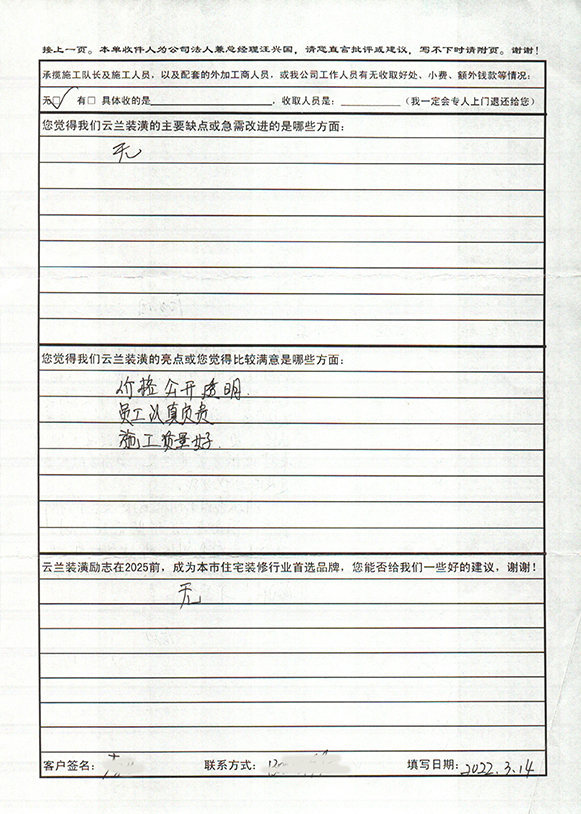 接上一页。本单收件人为公司法人兼总经理汪兴国，请您直言批评或建议，写不下时请附页。谢谢！
承揽施工队长及施工人员，以及配套的外加工商人员，或我公司工作人员有无收取好处、小费、额外钱款等情况：
无☑ 有□ 具体收的是____________________，收取人员是：__________（我一定会专人上门退还给您）
您觉得我们云兰装潢的主要缺点或急需改进的是哪些方面：
无
您觉得我们云兰装潢的亮点或您觉得比较满意是哪些方面：
价格公开透明.
员工认真负责
施工质量好.
云兰装潢励志在2025前，成为本市住宅装修行业首选品牌，您能否给我们一些好的建议，谢谢！
无
客户签名： 联系方式： 填写日期：2022.3.14